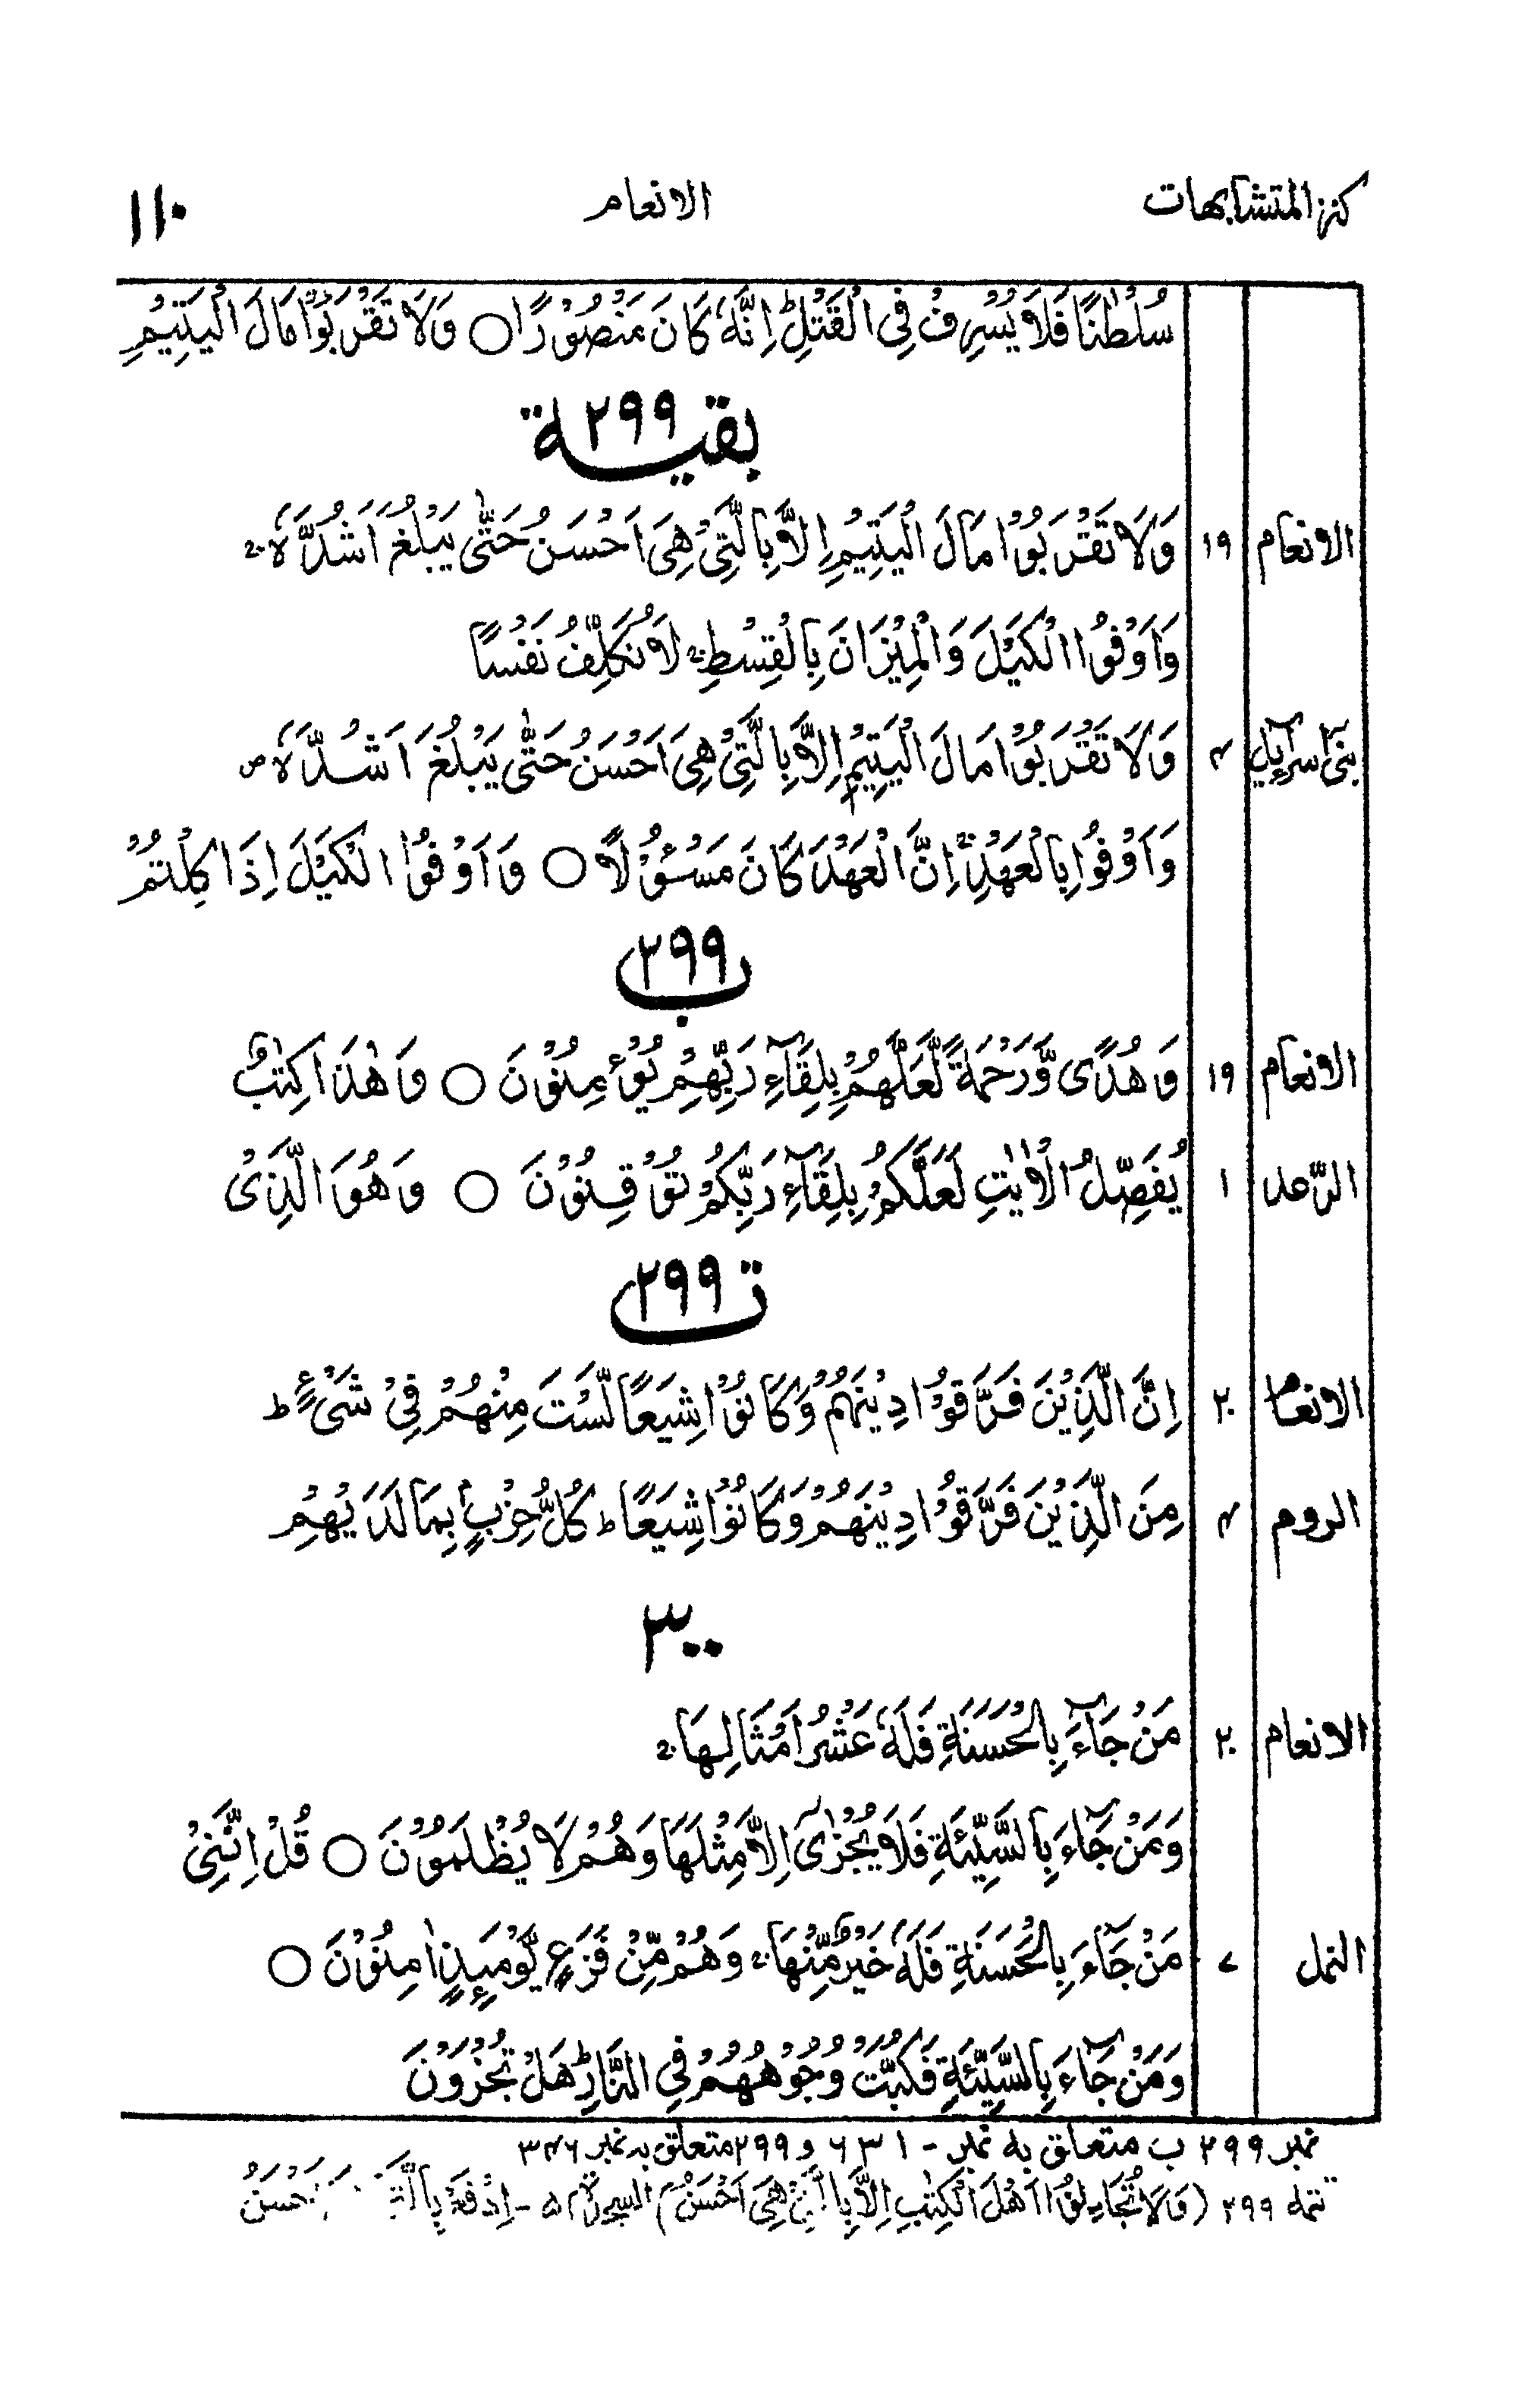 كنز المتشابهات الانعام ١١٠
سُلْطٰنًا فَلَا يُسْرِفْ فِى الْقَتْلِ ؕ اِنَّهٗ كَانَ مَنْصُوْرًا ○ وَلَا تَقْرَبُوْا مَالَ الْيَتِيْمِ
بقية ٢٩٩
الانعام ١٩ وَلَا تَقْرَبُوْا مَالَ الْيَتِيْمِ اِلَّا بِالَّتِىْ هِىَ اَحْسَنُ حَتّٰى يَبْلُغَ اَشُدَّهٗ ۚ
وَاَوْفُوا الْكَيْلَ وَالْمِيْزَانَ بِالْقِسْطِ ۚ لَا نُكَلِّفُ نَفْسًا
بنى اسرآءيل ۴ وَلَا تَقْرَبُوْا مَالَ الْيَتِيْمِ اِلَّا بِالَّتِىْ هِىَ اَحْسَنُ حَتّٰى يَبْلُغَ اَشُدَّهٗ ص
وَاَوْفُوْا بِالْعَهْدِ ۚ اِنَّ الْعَهْدَ كَانَ مَسْـُٔوْلًا ○ وَاَوْفُوا الْكَيْلَ اِذَا كِلْتُمْ
٢٩٩ ب
الانعام ١٩ وَهُدًى وَّرَحْمَةً لَّعَلَّهُمْ بِلِقَآءِ رَبِّهِمْ يُؤْمِنُوْنَ ○ وَهٰذَا كِتٰبٌ
الرّعد ١ يُفَصِّلُ الْاٰيٰتِ لَعَلَّكُمْ بِلِقَآءِ رَبِّكُمْ تُوْقِنُوْنَ ○ وَهُوَ الَّذِىْ
٢٩٩ ت
الانعام ٢٠ اِنَّ الَّذِيْنَ فَرَّقُوْا دِيْنَهُمْ وَكَانُوْا شِيَعًا لَّسْتَ مِنْهُمْ فِىْ شَىْءٍ ؕ
الروم ۴ مِنَ الَّذِيْنَ فَرَّقُوْا دِيْنَهُمْ وَكَانُوْا شِيَعًا ؕ كُلُّ حِزْبٍۭ بِمَا لَدَيْهِمْ
٣٠٠
الانعام ٢٠ مَنْ جَآءَ بِالْحَسَنَةِ فَلَهٗ عَشْرُ اَمْثَالِهَا ۚ
وَمَنْ جَآءَ بِالسَّيِّئَةِ فَلَا يُجْزٰٓى اِلَّا مِثْلَهَا وَهُمْ لَا يُظْلَمُوْنَ ○ قُلْ اِنَّنِىْ
النمل ٧ مَنْ جَآءَ بِالْحَسَنَةِ فَلَهٗ خَيْرٌ مِّنْهَا ۚ وَهُمْ مِّنْ فَزَعٍ يَّوْمَئِذٍ اٰمِنُوْنَ ○
وَمَنْ جَآءَ بِالسَّيِّئَةِ فَكُبَّتْ وُجُوْهُهُمْ فِى النَّارِ ؕ هَلْ تُجْزَوْنَ
نمبر ٢٩٩ ب متعلق به نمبر - ٦٣١ و ٢٩٩ متعلق به نمبر ٣۴٦
تتمه ٢٩٩ (وَلَا تُجَادِلُوْٓا اَهْلَ الْكِتٰبِ اِلَّا بِالَّتِىْ هِىَ اَحْسَنُ) السجدة ۵ - اِدْفَعْ بِالَّتِىْ اَحْسَنُ